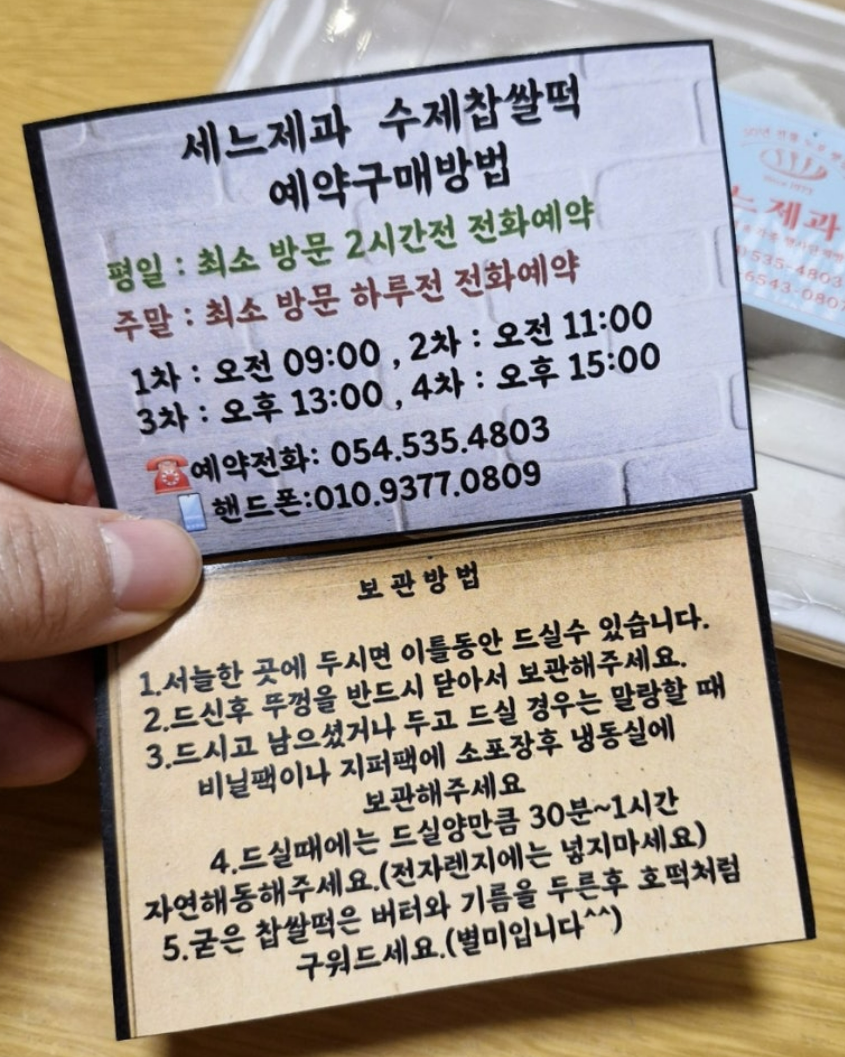 세느제과 수제찹쌀떡
예약구매방법
평일 : 최소 방문 2시간전 전화예약
주말 : 최소 방문 하루전 전화예약
1차 : 오전 09:00 , 2차 : 오전 11:00
3차 : 오후 13:00 , 4차 : 오후 15:00
예약전화: 054.535.4803
핸드폰:010.9377.0809
보관방법
1.서늘한 곳에 두시면 이틀동안 드실수 있습니다.
2.드신후 뚜껑을 반드시 닫아서 보관해주세요.
3.드시고 남으셨거나 두고 드실 경우는 말랑할 때
비닐팩이나 지퍼팩에 소포장후 냉동실에
보관해주세요
4.드실때에는 드실양만큼 30분~1시간
자연해동해주세요.(전자렌지에는 넣지마세요)
5.굳은 찹쌀떡은 버터와 기름을 두른후 호떡처럼
구워드세요.(별미입니다^^)
느제과
535-4803
6543-0807